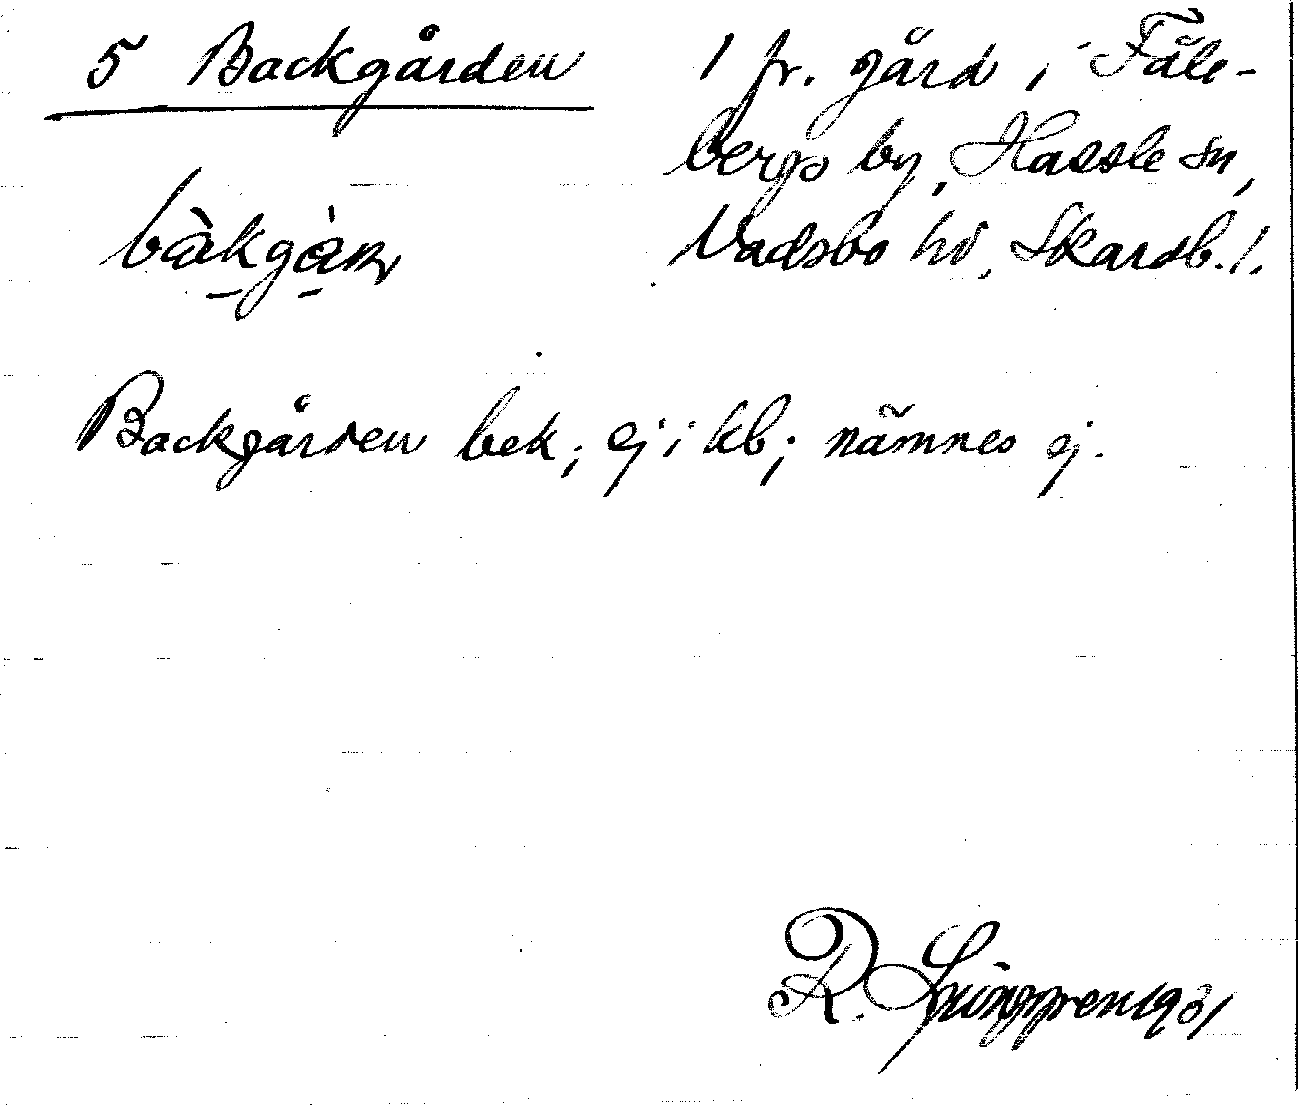 5 Backgården
1 fr. gård i Fäle-
bergs by, Hassle sn,
Vadsbo hd, Skarab. l.
bàkgàɳ
Backgården bek; ej i kb; nämnes ej.
R. Ljunggren 1931